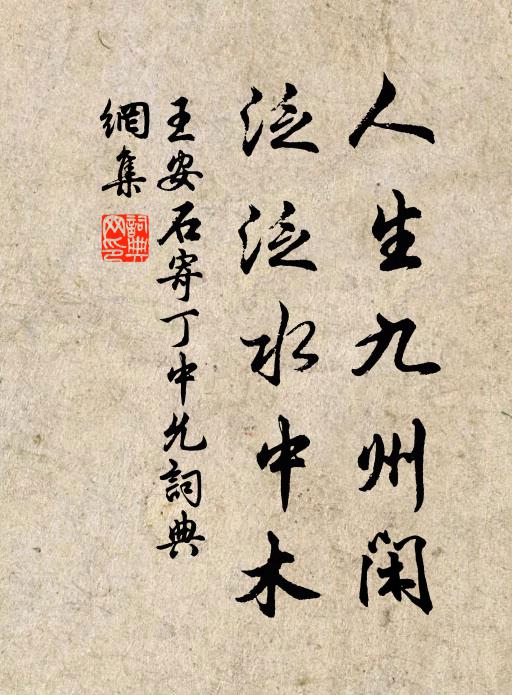 人生九州閑
泛泛水中木
王安石寄丁中允詞典
網集
詞典
网印